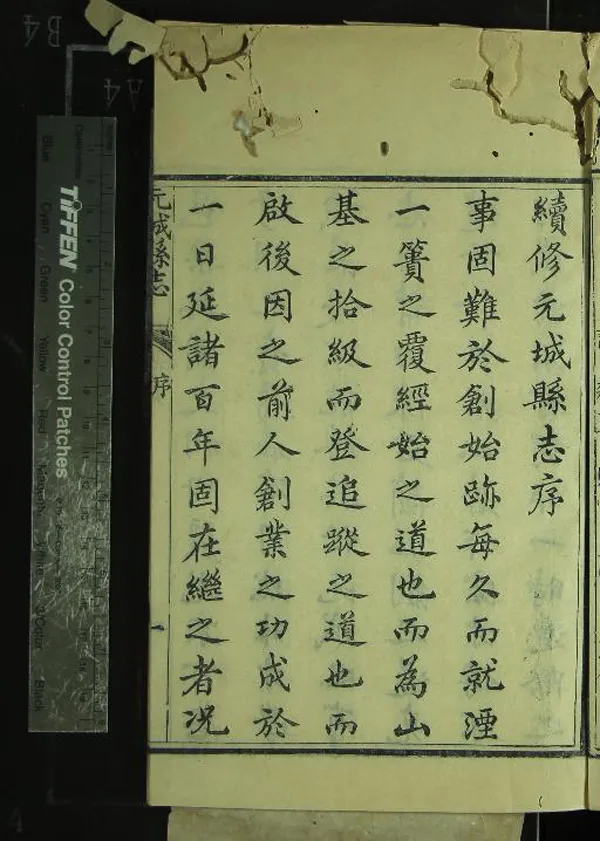 續修元城縣志序
事固難於創始跡每久而就湮
一簣之覆經始之道也而為山
基之拾級而登追蹤之道也而
啟後因之前人創業之功成於
一日延諸百年固在繼之者况
元城縣志
序
一
TIFFEN Color Control Patches
Blue
Cyan
Green
Yellow
Red
Magenta
3/Color
Black
B4
A4
4